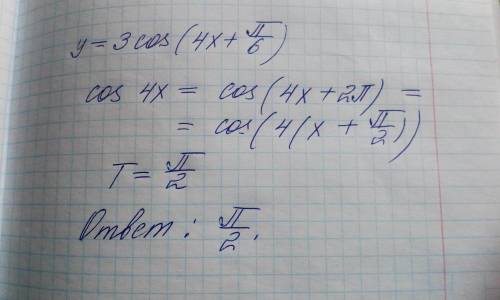 y = 3 cos(4x + π/6)
cos 4x = cos(4x + 2π) =
= cos(4(x + π/2))
T = π/2
Ответ: π/2.